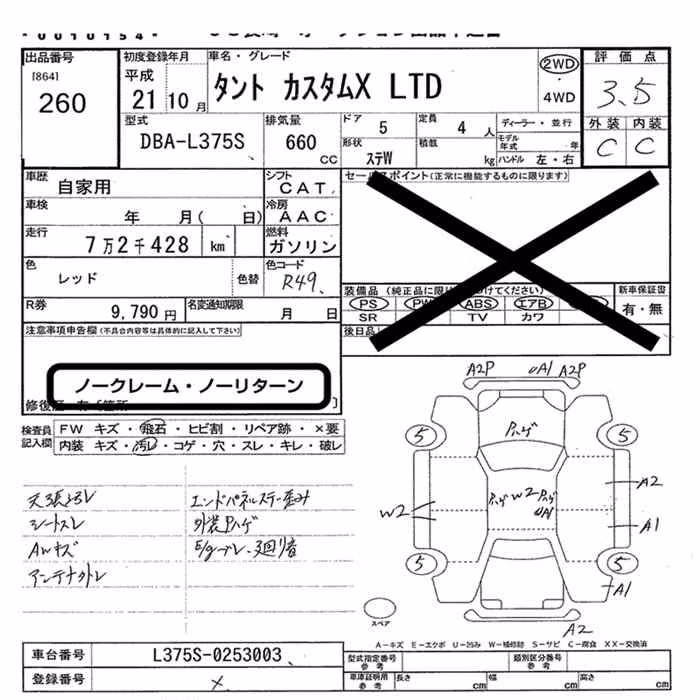 *0010154*
出品番号
[864]
260
初度登録年月
平成
21 10 月
車名・グレード
タント カスタムX LTD
2WD
4WD
評価点
3.5
型式
DBA-L375S
排気量
660 cc
ドア 5
定員 4 人
ディーラー・並行
形状 ステW
積載 kg
モデル年式 年
ハンドル 左・右
外装 内装
C C
車歴
自家用
シフト
CAT
車検
年 月( 日)
冷房
AAC
走行
7万2千428 km
燃料
ガソリン
色
レッド
色替
色コード
R49
R券
9,790 円
名変通知期限
月 日
セールスポイント(正常に機能するものに限ります)
装備品(純正品に限り
けてください)
新車保証書
PS PW ABS エアB
有・無
SR TV カワ
後日品
注意事項申告欄(不具合内容等は具体的に記入して下さい)
ノークレーム・ノーリターン
検査員記入欄
FW キズ・飛石・ヒビ割・リペア跡・×要
内装 キズ・汚レ・コゲ・穴・スレ・キレ・破レ
天張汚レ
シートスレ
AWキズ
アンテナトレ
エンドパネルステー歪み
外装Pハゲ
E/gブレ・廻り音
A2P
A1
A2P
Pハゲ
5
5
W2
Pハゲ
W2
Pハゲ
A1
A2
A1
5
5
A1
A2
スペア
A-キズ E-エクボ U-凹み W-補修跡 S-サビ C-腐食 XX-交換済
車台番号
L375S-0253003
登録番号
×
型式指定番号参考
類別区分番号参考
車庫証明用参考
長さ cm
幅 cm
高さ cm